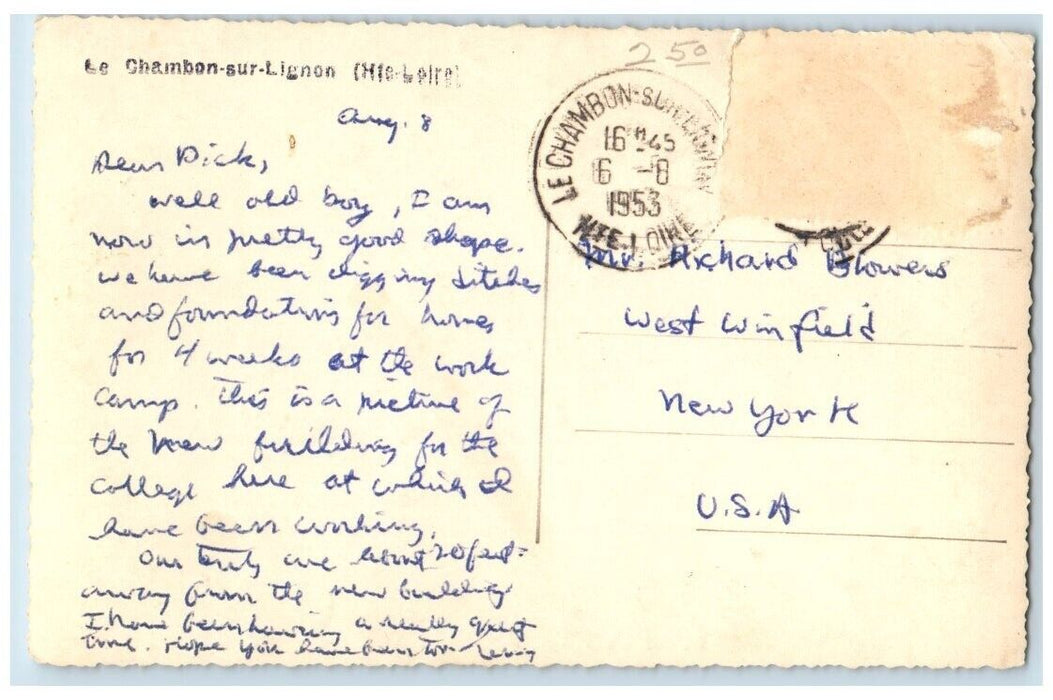 Le Chambon-sur-Lignon (Hte-Loire)
Aug. 8
Dear Dick,
Well old boy, I am
now in pretty good shape.
We have been digging ditches
and foundations for homes
for 4 weeks at the work
camp. This is a picture of
the new building for the
college here at which I
have been working.
Our are about 20 feet
away from the new building
I have been having a really great
time. Hope you have been too
250
LE CHAMBON-SUR-LIGNON
16H45
6 -8
1953
HTE-LOIRE
Mr. Richard Blowers
West Winfield
New York
U.S.A